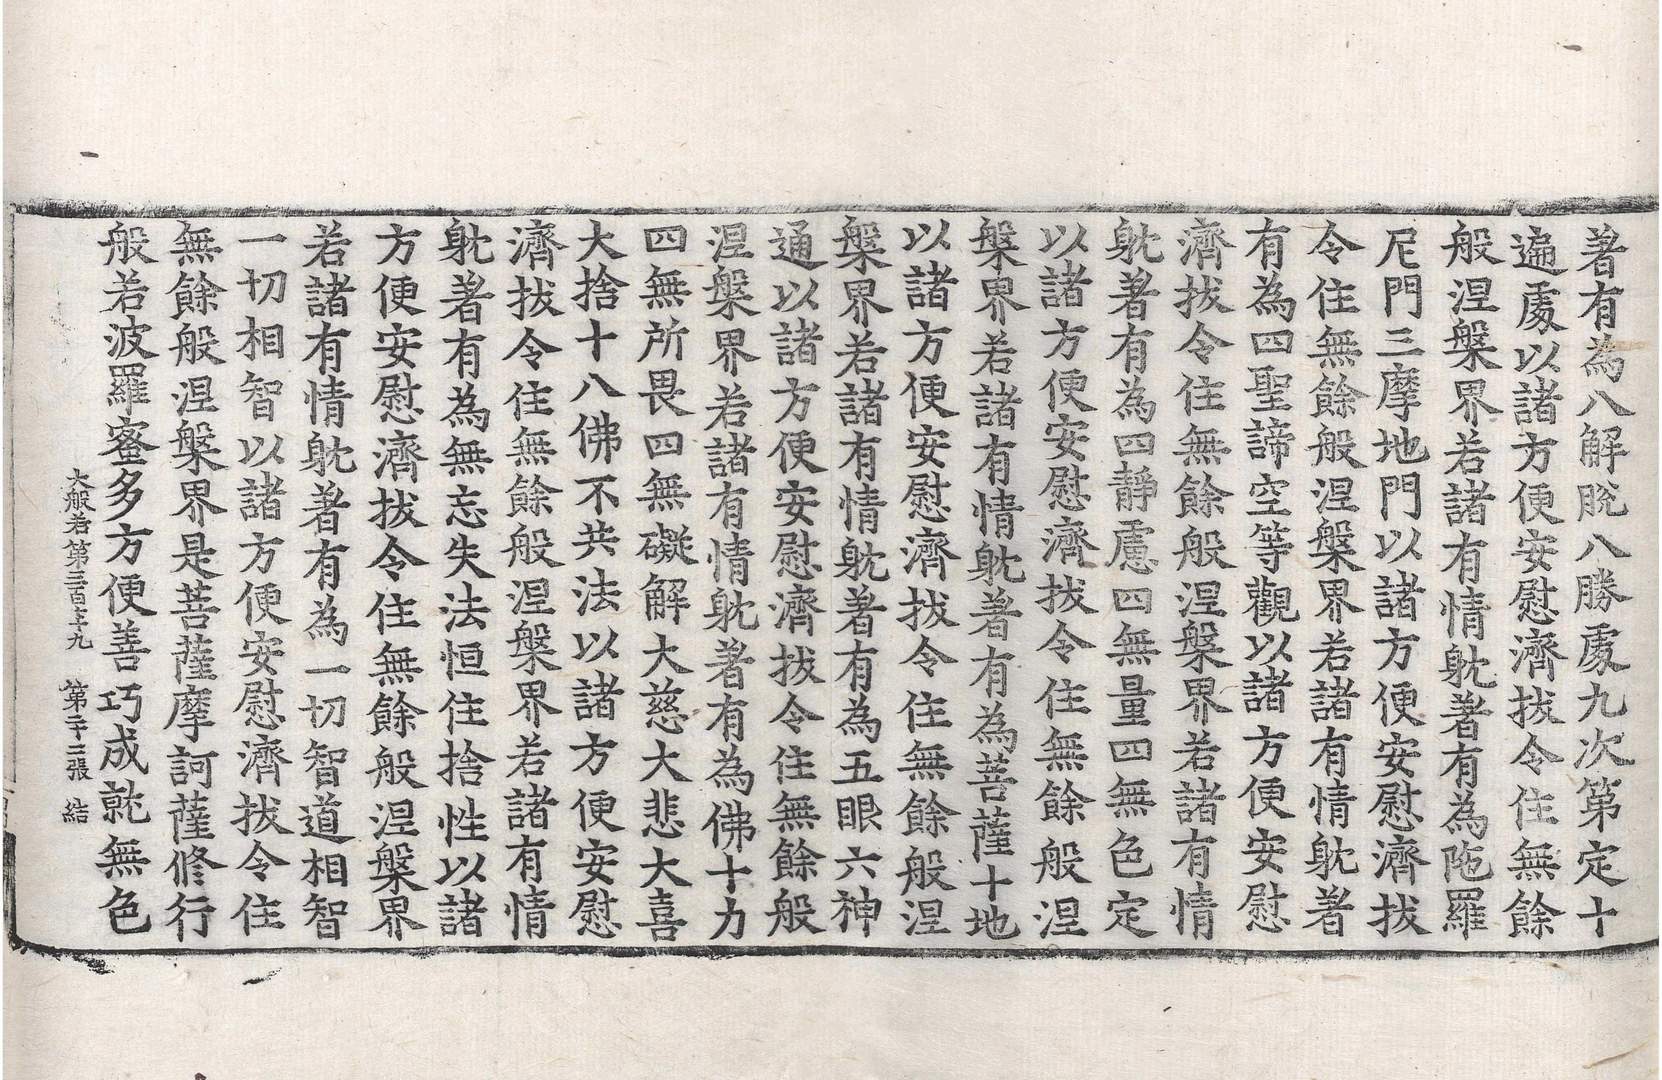 著有為八解脫八勝處九次第定十
遍處以諸方便安慰濟拔令住無餘
般涅槃界若諸有情躭著有為陁羅
尼門三摩地門以諸方便安慰濟拔
令住無餘般涅槃界若諸有情躭著
有為四聖諦空等觀以諸方便安慰
濟拔令住無餘般涅槃界若諸有情
躭著有為四靜慮四無量四無色定
以諸方便安慰濟拔令住無餘般涅
槃界若諸有情躭著有為菩薩十地
以諸方便安慰濟拔令住無餘般涅
槃界若諸有情躭著有為五眼六神
通以諸方便安慰濟拔令住無餘般
涅槃界若諸有情躭著有為佛十力
四無所畏四無礙解大慈大悲大喜
大捨十八佛不共法以諸方便安慰
濟拔令住無餘般涅槃界若諸有情
躭著有為無忘失法恒住捨性以諸
方便安慰濟拔令住無餘般涅槃界
若諸有情躭著有為一切智道相智
一切相智以諸方便安慰濟拔令住
無餘般涅槃界是菩薩摩訶薩修行
般若波羅蜜多方便善巧成就無色
大般若第三百七十九 第二十三張 結